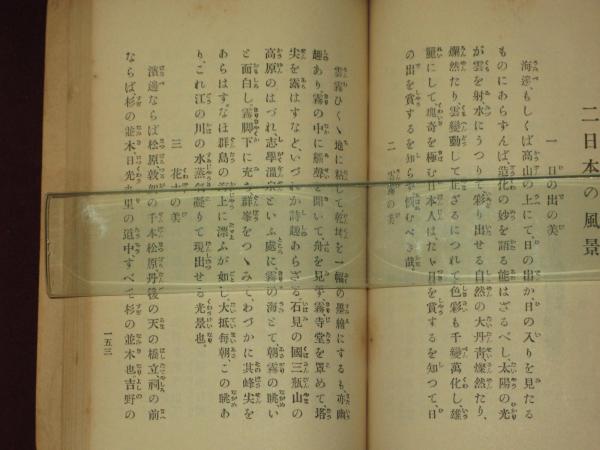 二 日本の風景
一 日の出の美
海邊、もしくば高山の上にて、日の出か日の入りを見たる
ものにあらずんば、造化の妙を語る能はざるべし、太陽の光
が雲を射、水にうつり、彩り出せる自然の大丹靑、燦然たり、
爛然たり、雲變動して止ざるにつれて色彩も千變萬化し、雄
麗にして、瑰奇を極む、日本人は、たゞ月を賞するを知つて、日
の出を賞するを知らず、憫むべき哉、
二 雲霧の美
雲霧ひくゝ地に粘して、乾坤を一幅の墨繪にするも、亦幽
趣あり、霧の中に艪聲を聞いて舟を見ず、霧寺堂を罩めて、塔
尖を露はすなど、いづれか詩趣あらざる、石見の國三瓶山の
高原のはづれ、志學溫泉といふ處に、霧の海とて、朝霧の眺い
と面白し、霧脚下に充ち、群峯をつゝみて、わづかに其峰尖を
あらはす、なほ群島の海上に漂ふが如し、大抵每朝、この眺あ
り、これ江の川の水蒸氣凝りて現出せる光景也、
三 花木の美
濱邊ならば松原、敦賀の千本松原、丹後の天の橋立、祠の前
ならば、杉の並木、日光九里の道中、すべて杉の並木也、吉野の
一五三